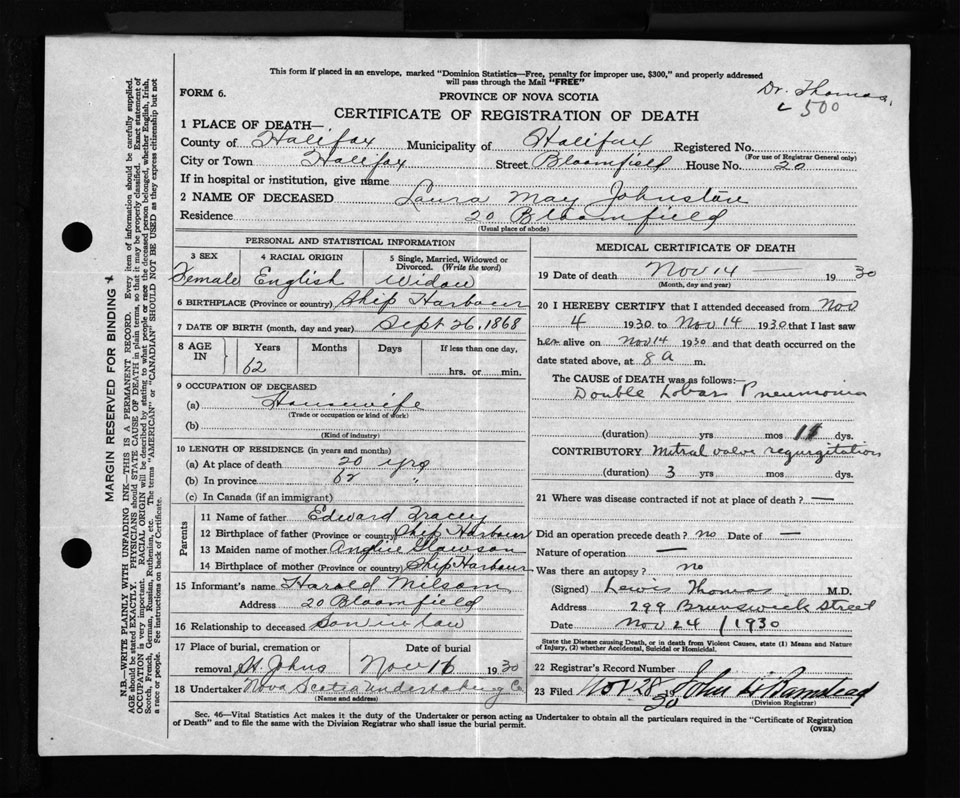 This form if placed in an envelope, marked "Dominion Statistics—Free, penalty for improper use, $300," and properly addressed
will pass through the Mail "FREE"
Dr. Thomas,
500
FORM 6.
PROVINCE OF NOVA SCOTIA
CERTIFICATE OF REGISTRATION OF DEATH
1 PLACE OF DEATH—
County of Halifax Municipality of Halifax Registered No.
(For use of Registrar General only)
City or Town Halifax Street Bloomfield House No. 20
If in hospital or institution, give name
2 NAME OF DECEASED Laura May Johnston
Residence 20 Bloomfield
(Usual place of abode)
PERSONAL AND STATISTICAL INFORMATION
3 SEX 4 RACIAL ORIGIN 5 Single, Married, Widowed or
Divorced. (Write the word)
Female English Widow
6 BIRTHPLACE (Province or country) Ship Harbour
7 DATE OF BIRTH (month, day and year) Sept 26, 1868
8 AGE IN Years Months Days If less than one day,
62 hrs. or min.
9 OCCUPATION OF DECEASED
(a) Housewife
(Trade or occupation or kind of work)
(b)
(Kind of industry)
10 LENGTH OF RESIDENCE (in years and months)
(a) At place of death 20 yrs
(b) In province 62 "
(c) In Canada (if an immigrant)
Parents
11 Name of father Edward Tracey
12 Birthplace of father (Province or country) Ship Harbour
13 Maiden name of mother
14 Birthplace of mother (Province or country) Ship Harbour
15 Informant's name Harold Milsom
Address 20 Bloomfield
16 Relationship to deceased Son in law
17 Place of burial, cremation or Date of burial
removal St. Johns Nov 16 1930
18 Undertaker Nova Scotia Undertaking Co
(Name and address)
MEDICAL CERTIFICATE OF DEATH
19 Date of death Nov 14 — 1930
(Month, day and year)
20 I HEREBY CERTIFY that I attended deceased from Nov
4 1930 to Nov 14 1930 that I last saw
her alive on Nov 14 1930 and that death occurred on the
date stated above, at 8 a m.
The CAUSE OF DEATH was as follows:
Double Lobar Pneumonia
(duration) yrs mos 11 dys.
CONTRIBUTORY Mitral valve regurgitation
(duration) 3 yrs mos dys.
21 Where was disease contracted if not at place of death? —
Did an operation precede death? no Date of —
Nature of operation —
Was there an autopsy? no
(Signed) Lewis Thomas M.D.
Address 299 Brunswick Street
Date Nov 24 / 1930
State the Disease causing Death, or in death from Violent Causes, state (1) Means and Nature
of Injury, (2) whether Accidental, Suicidal or Homicidal.
22 Registrar's Record Number
23 Filed Nov 28 30 John H Barnstead
(Division Registrar)
Sec. 46—Vital Statistics Act makes it the duty of the Undertaker or person acting as Undertaker to obtain all the particulars required in the "Certificate of Registration
of Death" and to file the same with the Division Registrar who shall issue the burial permit.
(OVER)
MARGIN RESERVED FOR BINDING
N.B.—WRITE PLAINLY WITH UNFADING INK—THIS IS A PERMANENT RECORD. Every item of information should be carefully supplied.
AGE should be stated EXACTLY. PHYSICIANS should STATE CAUSE OF DEATH in plain terms, so that it may be properly classified. Exact statement of
OCCUPATION is very important. RACIAL ORIGIN will be described by stating to what people or race the deceased person belonged, whether English, Irish,
Scotch, French, German, Russian, Ruthenian, etc. The terms "AMERICAN" or "CANADIAN" SHOULD NOT BE USED as they express citizenship but not
a race or people. See instructions on back of Certificate.